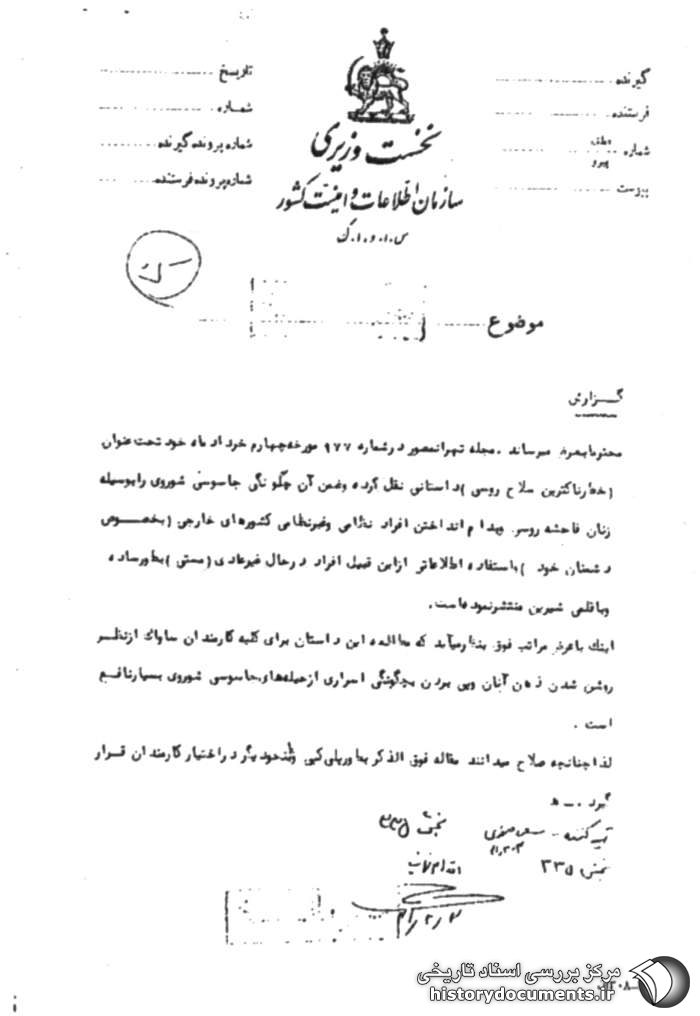 گیرنده
فرستنده
شماره
عطف
پیرو
پیوست
نخست وزیری
سازمان اطلاعات و امنیت کشور
س.ا.و.ا.ک
تاریخ
شماره
شماره پرونده گیرنده
شماره پرونده فرستنده
موضوع
گزارش
محترما بعرض میرساند . مجله تهرانمصور در شماره ۹۷۷ مورخه چهارم خرداد ماه خود تحت عنوان
(خطرناکترین سلاح روسی) داستانی نقل کرده وضمن آن چگونگی جاسوسی شوروی را بوسیله
زنان فاحشه روسی وبدام انداختن افراد نظامی وغیرنظامی کشورهای خارجی (بخصوص
دشمنان خود ) با استفاده اطلاعاتی ازاین قبیل افراد درحال غیرعادی (مستی) بطورساده
وباقلمی شیرین منتشرنموده است .
اینك باعرض مراتب فوق بنظر میآید که مطالعه این داستان برای کلیه کارمندان ساواك ازنظر
روشن شدن ذهن آنان وپی بردن بچگونگی اسراری ازحیله های جاسوسی شوروی بسیارنافع
است .
لذا چنانچه صلاح میدانند مقاله فوق الذکر بطور پلی کپی در اختیار کارمندان قرار
گیرد .
تهیه کننده -
بخش ۲۳۵
اقدام نمائید
مرکز بررسی اسناد تاریخی
historydocuments.ir